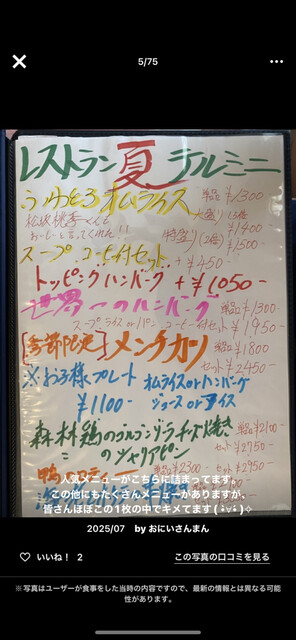 5/75
レストラン夏 テルミニ
ふわとろオムライス 単品 ¥1300
松坂桃李くんも 大盛り 1.5倍 ¥1400
おいしーと言ってくれた!! 特盛り (2倍) ¥1500
スープ.コーヒー付セット +¥450-
トッピングハンバーグ +¥1050-
世界一のハンバーグ 単品 ¥1300-
スープライス or パン コーヒー付セット ¥1950-
[季節限定] メンチカツ 単品 ¥1800
セット ¥2450-
※お子様プレート オムライス or ハンバーグ
¥1100- ジュース or アイス
森林鶏のゴルゴンゾーラチーズ焼き 単品 ¥2100-
セット ¥2750-
〃 のシャリアピン
鴨 ¥2300- セット ¥2950-
人気メニューがこちらに詰まってます。
この他にもたくさんメニューがありますが、
皆さんほぼこの1枚の中でキメてます
2025/07 by おにいさんまん
いいね! 2
この写真の口コミを見る
※写真はユーザーが食事をした当時の内容ですので、最新の情報とは異なる可能
性があります。